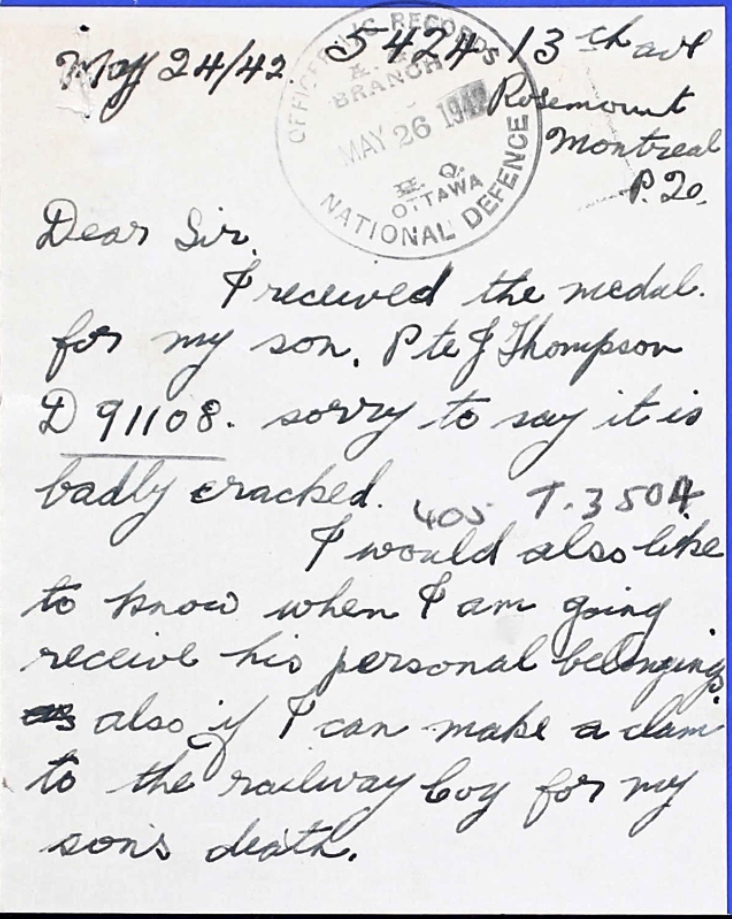 May 24/42. 5424 13th ave
Rosemount
Montreal
P. Q.
OFFICER I/C RECORDS
BRANCH
MAY 26 1942
H. Q.
OTTAWA
NATIONAL DEFENCE
Dear Sir.
I received the medal.
for my son. Pte J Thompson
D 91108. sorry to say it is
badly cracked.
405 T.3504
I would also like
to know when I am going
receive his personal belongings
also if I can make a clam
to the railway Coy for my
son's death.